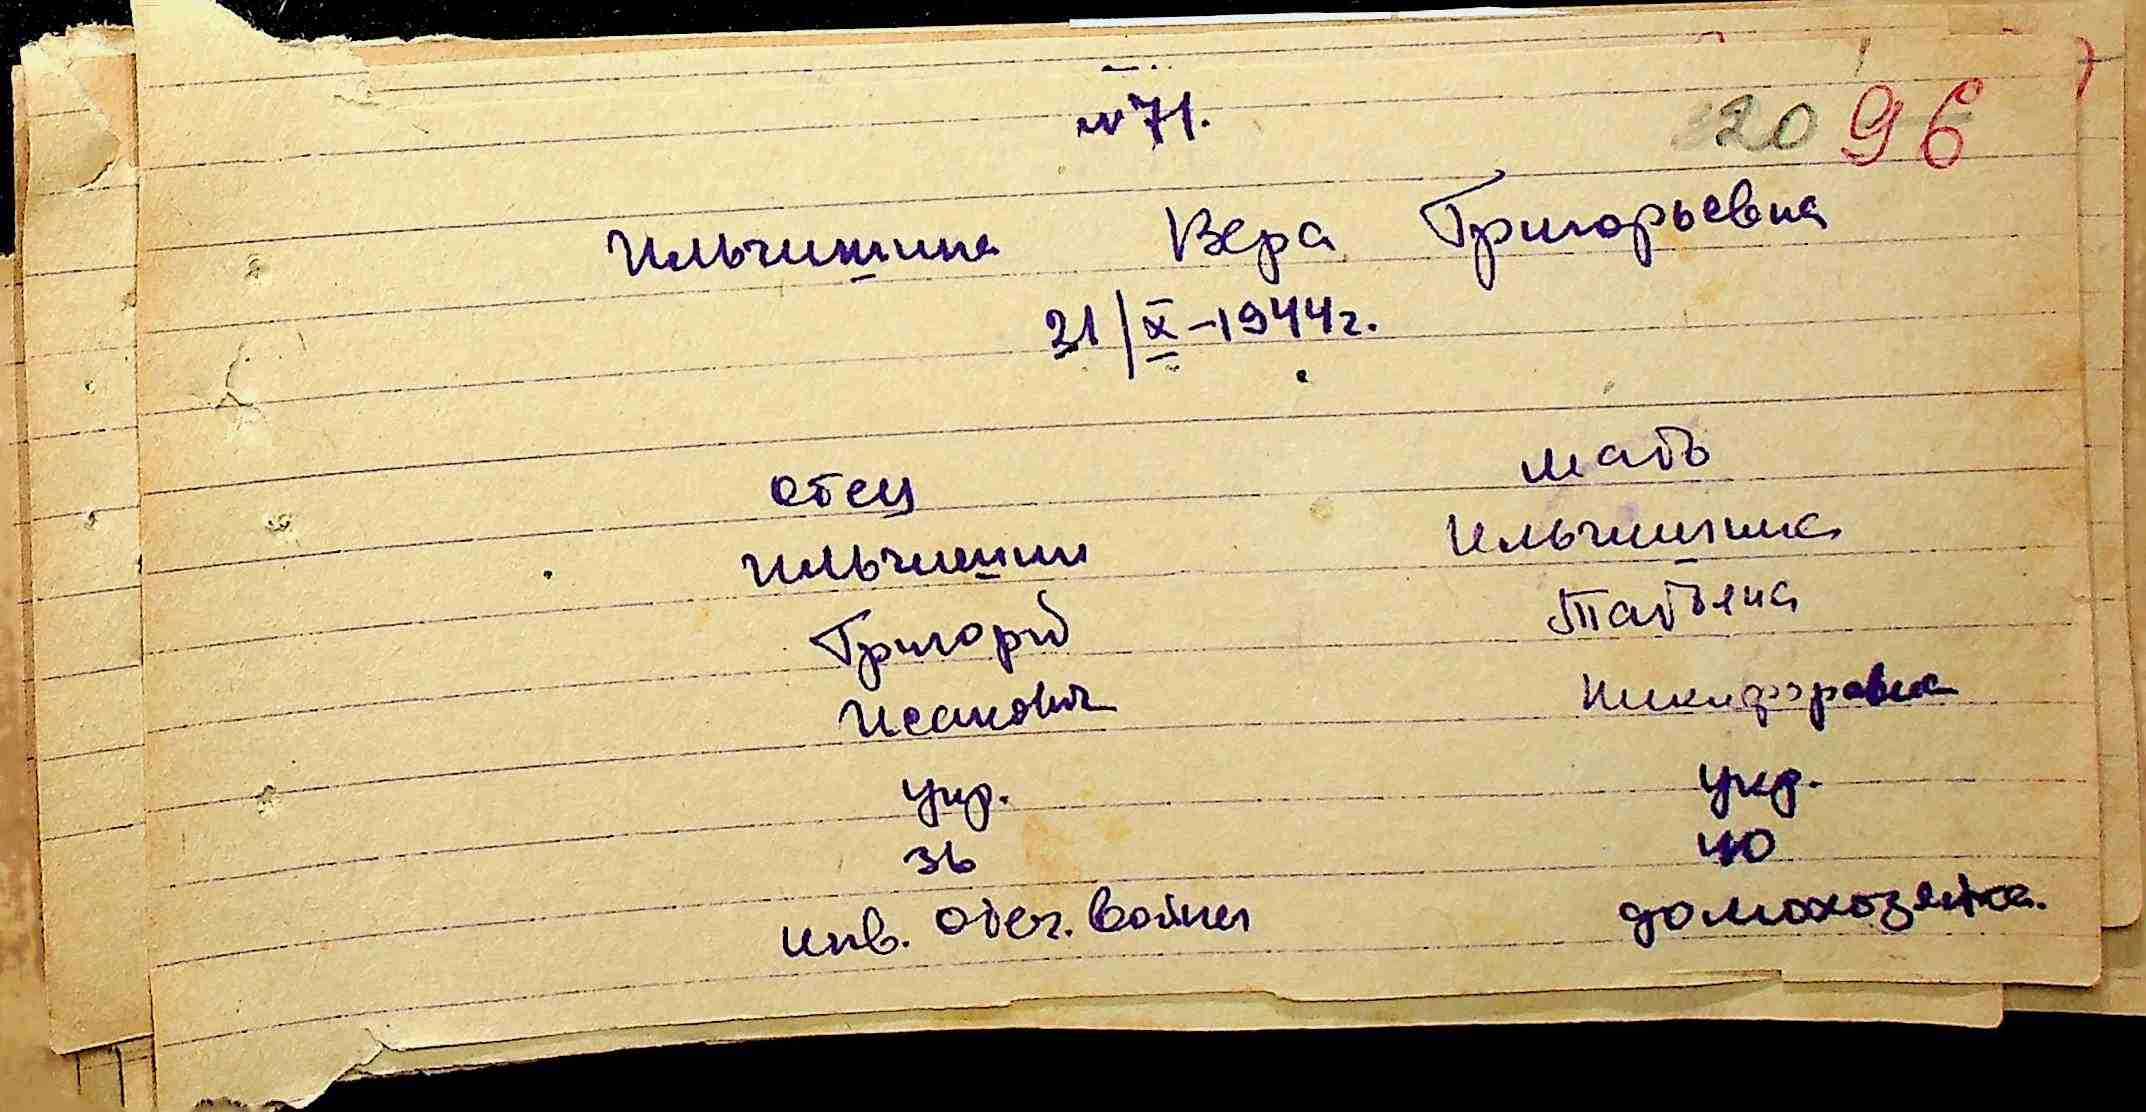 № 71.
20 96
Ильчишина Вера Григорьевна
21/X-1944г.
отец мать
Ильчишин Ильчишина
Григорий Татьяна
Исакович Никифоровна
укр. укр.
36 40
инв. отеч. войны домохозяйка.